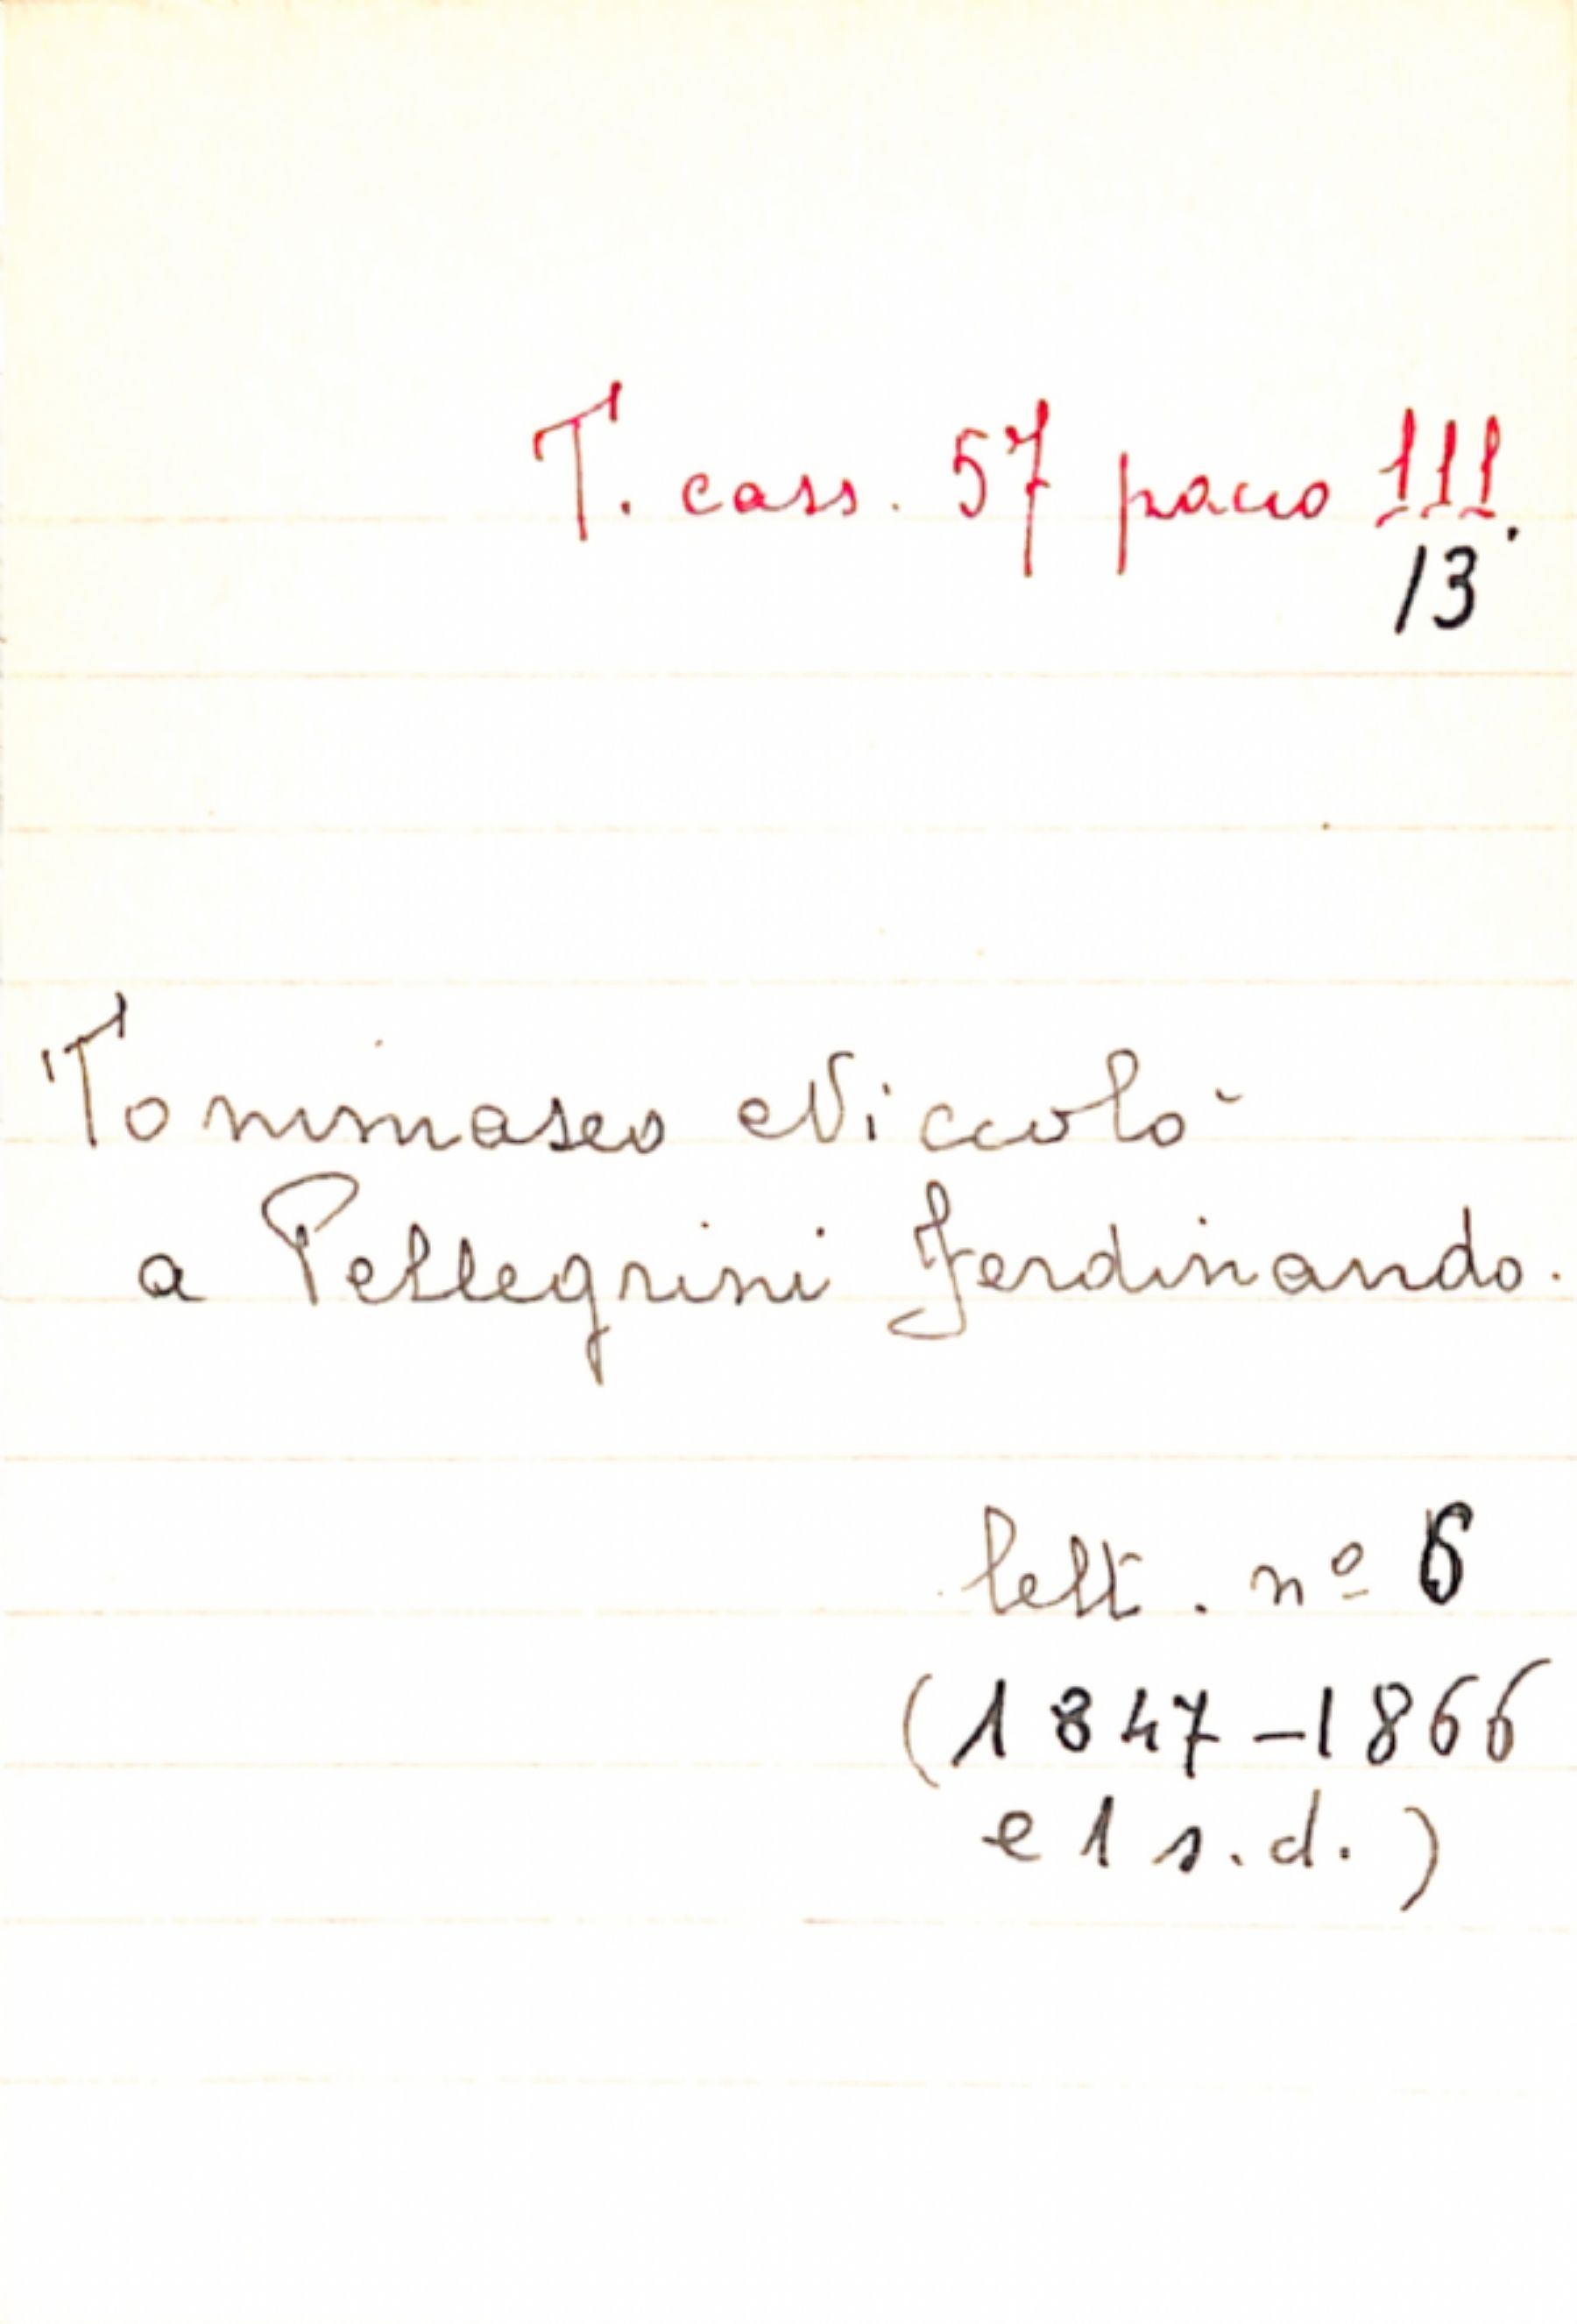 T. cass. 57 pacco III.
13
Tommaseo Niccolò
a Pellegrini Ferdinando.
lett. nº 6
(1847-1866
e 1 s.d.)